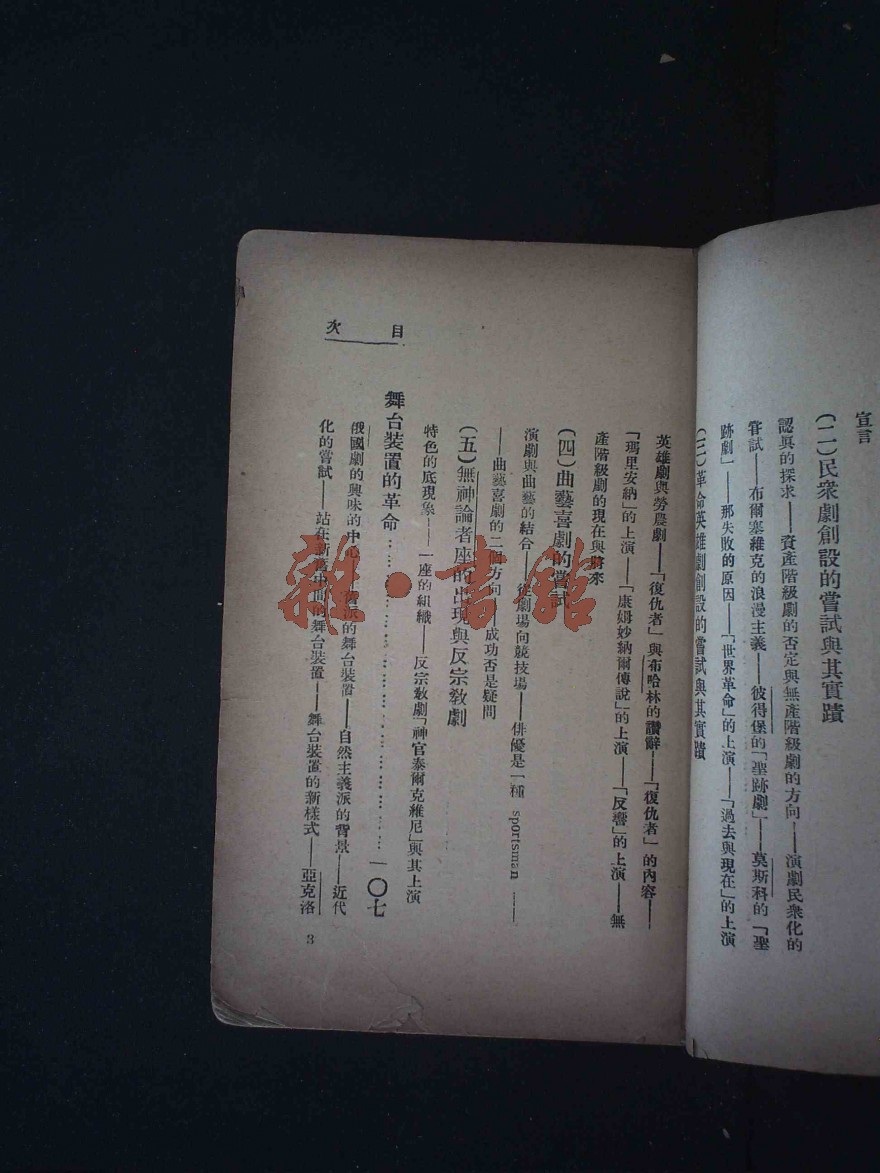 宣言
(二)民衆劇創設的嘗試與其實蹟
認眞的探求——資產階級劇的否定與無產階級劇的方向——演劇民衆化的
嘗試——布爾塞維克的浪漫主義——彼得堡的「聖跡劇」——莫斯科的「聖
跡劇」——那失敗的原因——「世界革命」的上演——「過去與現在」的上演
(三)革命英雄劇創設的嘗試與其實蹟
英雄劇與勞農劇——「復仇者」與布哈林的讚辭——「復仇者」的內容——
「瑪里安納」的上演——「康姆妙納爾傳說」的上演——「反響」的上演——無
產階級劇的現在與將來
(四)曲藝喜劇的嘗試
演劇與曲藝的結合——從劇場向競技場——俳優是一種 sportsman ——
——曲藝喜劇的二個方向——成功否是疑問
(五)無神論者座的出現與反宗教劇
特色的底現象——一座的組織——反宗教劇「神官泰爾克維尼」與其上演
舞台裝置的革命…………………………一〇七
俄國劇的興味的中心——舊派的舞台裝置——自然主義派的背景——近代
化的嘗試——站在新舊中間的舞台裝置——舞台裝置的新樣式——亞克洛
目次
3
雜·書館